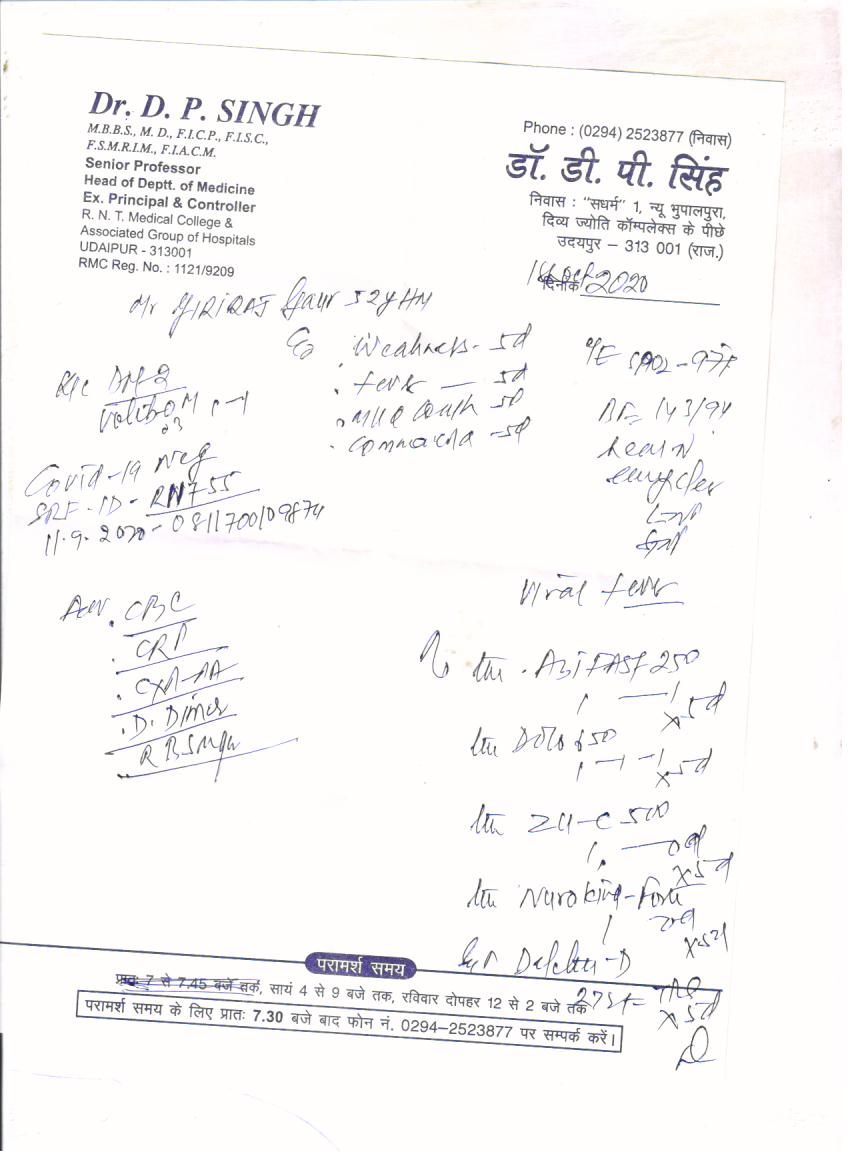 Dr. D. P. SINGH
M.B.B.S., M. D., F.I.C.P., F.I.S.C.,
F.S.M.R.I.M., F.I.A.C.M.
Senior Professor
Head of Deptt. of Medicine
Ex. Principal & Controller
R. N. T. Medical College &
Associated Group of Hospitals
UDAIPUR - 313001
RMC Reg. No. : 1121/9209
Phone : (0294) 2523877 (निवास)
डॉ. डी. पी. सिंह
निवास : "सधर्म" 1, न्यू भुपालपुरा,
दिव्य ज्योति कॉम्पलेक्स के पीछे
उदयपुर – 313 001 (राज.)
दिनांक 2020
Mr GIRIRAJ Gaur 52y
Weakness - 5d
Fever — 5d
Cough 5d
5d
DM-2
Covid-19 Neg
SRF-ID - RN755
11.9.2020 - 0811700109874
SPO2 - 97%
143/94
Viral fever
Adv. CBC
CRP
CXR-PA
D. Dimer
R B Sugar
AZIFAST 250
1 — 1
x 5d
Dolo 650
1 - 1 - 1
x 5d
500
x 5d
Forte
x 5d
-D
x 5d
परामर्श समय
प्रातः 7 से 7.45 बजे तक, सायं 4 से 9 बजे तक, रविवार दोपहर 12 से 2 बजे तक
परामर्श समय के लिए प्रातः 7.30 बजे बाद फोन नं. 0294–2523877 पर सम्पर्क करें।